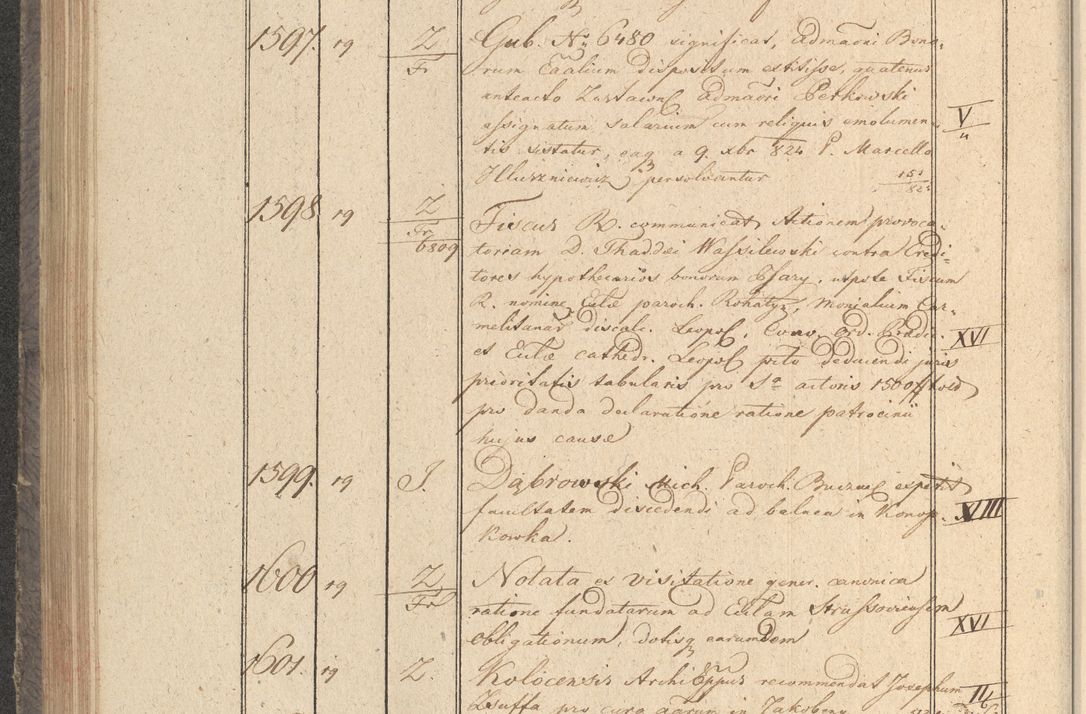 1597. 19 Z/Fr Gub. Nr 6480 significat, Admāōni Bono-
rum Cāālium dispositum extitisse, quatenus
anteacto Zastawn Admāōri Perkowski
assignatum salarium cum reliquis emolumen- V/u
tis sistatur, eaq a 9. xbr 824 P. Marcello
Illuszniewicz persolvantur 151/825
1598. 19 Z/Fr 6809 Fiscus R. communicat Actionem provoca-
toriam D. Thaddei Wassilewski contra Credi-
tores hypothecarios bonorum Psary, utpote Fiscum
R. nomine Eccłae paroch. Rohatyn, Monialium Car-
melitanar discalc. Leopol, Conv. Ord. Praedic. XVI
et Eccłae cathedr. Leopol pcto deducendi juris
prioritatis tabularis pro Sa actoris 1500 f hold
pro danda declaratione ratione patrocinii
hujus causae
1599. 19 J. Dąbrowski Mich. Paroch. Buczac expetit
facultatem discedendi ad balnea in Konop- XVIII
kowka.
1600 19 Z/Fr Notata ex visitatione gener. canonica
ratione fundatarum ad Eccłam Strussoviensem
obligationum, dotisq earumdem XVI
1601. 19 Z. Kolocensis ArchiEppus recommendat Josephum II
Zsuffa pro cura aarum in Jakobeny